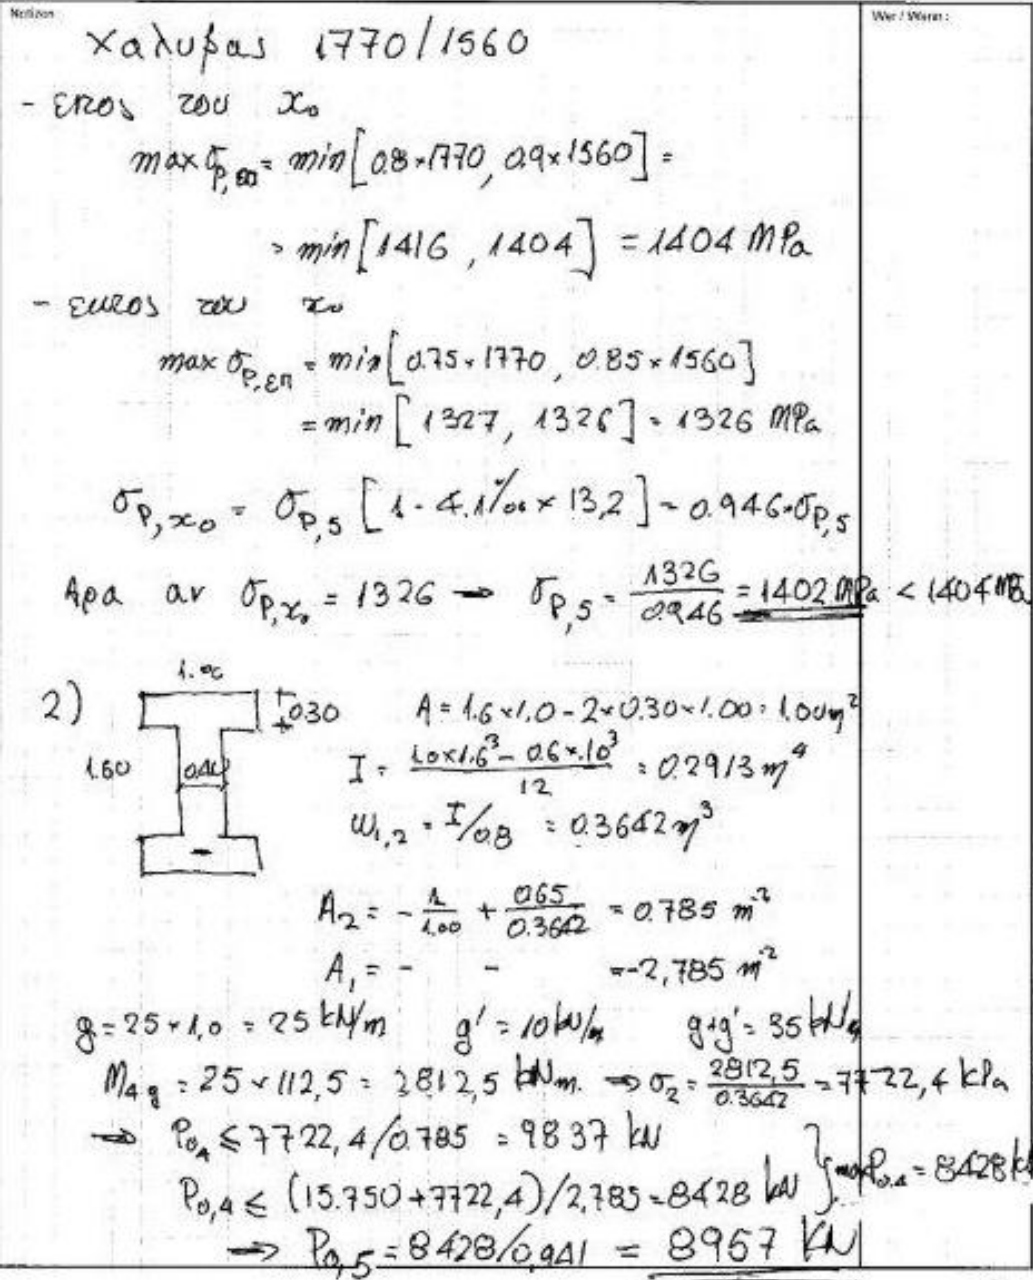 Notizen
Wer / Wann :
Χαλυβας 1770/1560
- εκτος του x₀
maxσ_P,επ = min[0.8×1770, 0.9×1560] =
= min[1416, 1404] = 1404 MPa
- εντος του x₀
maxσ_P,επ = min[0.75×1770, 0.85×1560]
= min[1327, 1326] = 1326 MPa
σ_P,x₀ = σ_P,5 [1 - 4.1‰ × 13,2] = 0.946·σ_P,5
Αρα αν σ_P,x₀ = 1326 → σ_P,5 = 1326/0.946 = 1402 MPa < 1404 MPa
2)
1.00
0.30
1.60
0.40
A = 1.6×1.0 - 2×0.30×1.00 = 1.00 m²
I = (1.0×1.6³ - 0.6×1.0³)/12 = 0.2913 m⁴
W₁,₂ = I/0.8 = 0.3642 m³
A₂ = -1/1.00 + 0.65/0.3642 = 0.785 m⁻²
A₁ = - - = -2,785 m⁻²
g = 25×1,0 = 25 kN/m g' = 10 kN/m g+g' = 35 kN/m
M₄g = 25×112,5 = 2812,5 kNm. ⇒ σ₂ = 2812,5/0.3642 = 7722,4 kPa
⇒ P₀,₄ ≤ 7722,4/0.785 = 9837 kN
P₀,₄ ≤ (15.750+7722,4)/2,785 = 8428 kN } maxP₀,₄ = 8428 k
⇒ P₀,5 = 8428/0,941 = 8957 KN